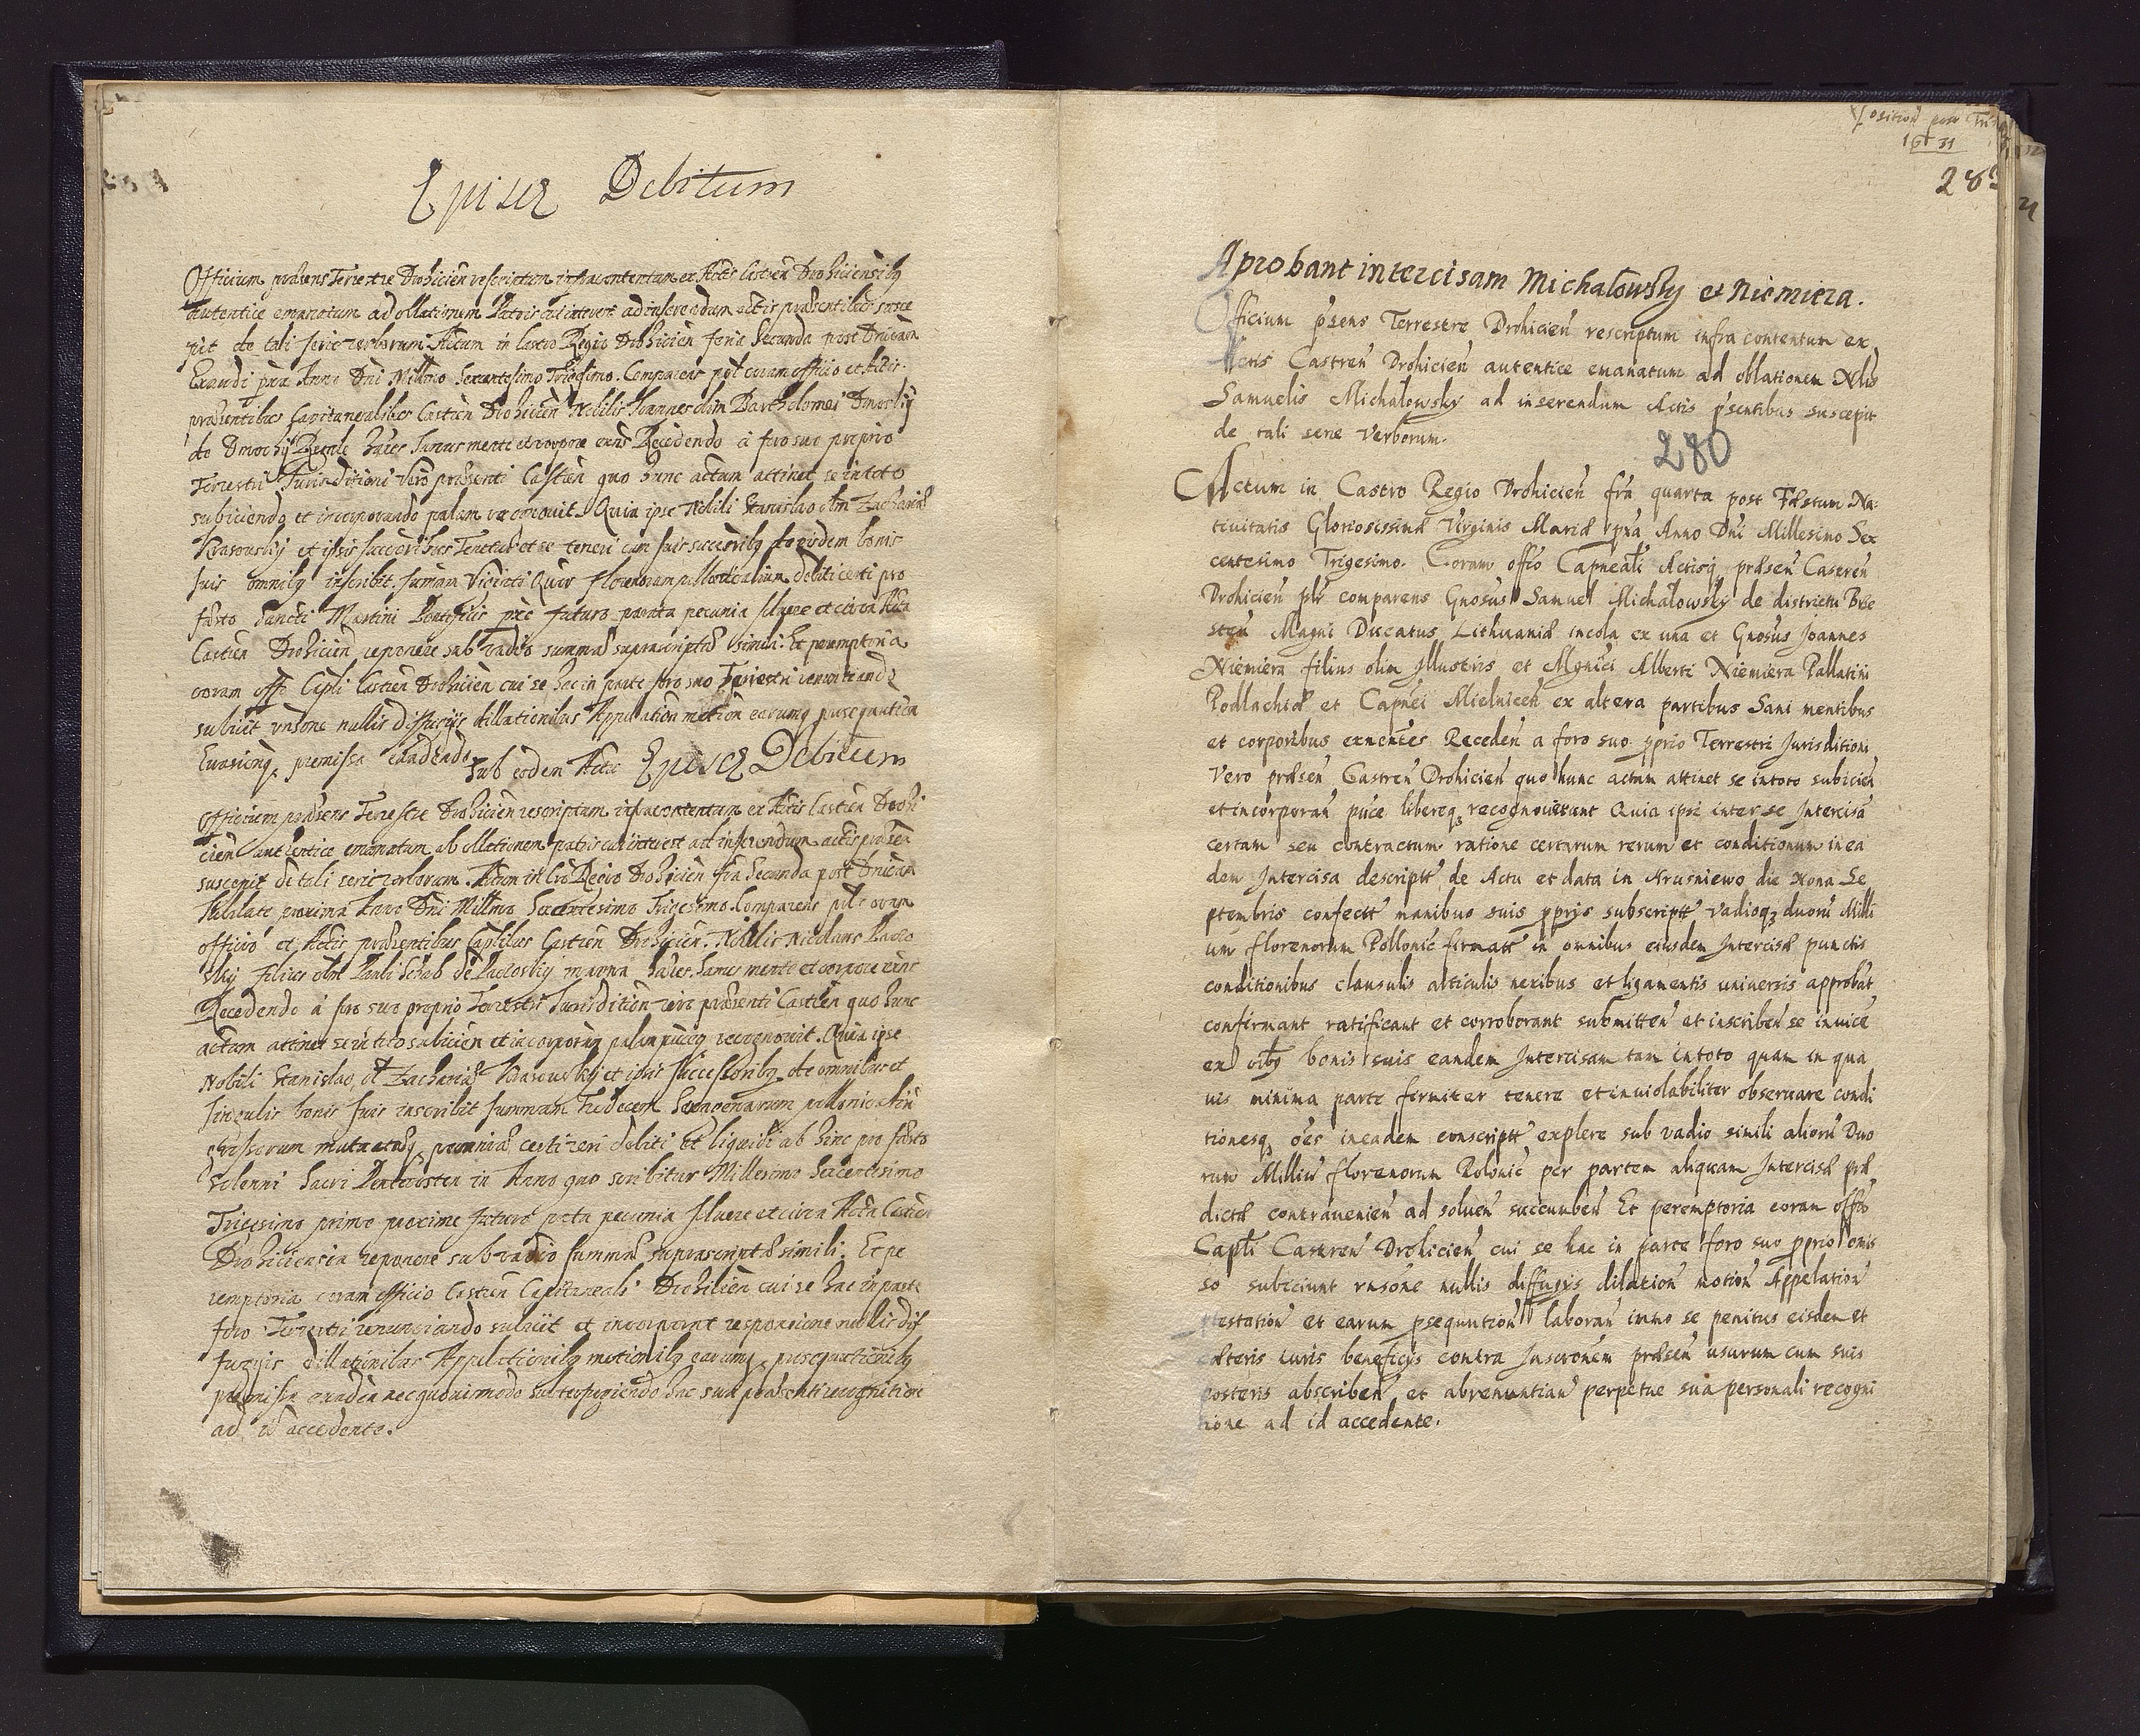 Eiusq Debitum
Officium praesens Terrestre Drohicien rescriptum infracontentum ex Actis Castren Drohiciensibq
autentice emanatum ad oblationem Patris cui interest ad inserendum actis praesentibus susce
pit de tali serie verborum. Actum in Castro Regio Drohicien feria Secunda post Dnicam
Exaudi pxa Anno Dni Millmo Sexcentesimo Trigesimo. Comparens psl coram officio et Actis
praesentibus Capitanealibus Castren Drohicien Nobilis Joannes olim Bartholomei Dmoskij
de Dmochij haeres Sanus mente et corpore exns Recedendo a foro suo proprio
Terrestri Jurisditioni vero praesenti Castren quo hunc actum attinet se in toto
subiciendo et incorporando palam recognouit. Quia ipse Nobili Stanislao olm Zachariae
Krasowskij et ipsis successoribus Tenetur et se teneri cum suis successoribq de eisdem bonis
suis omnibq inscribit. summam Viginti Quinq florenorum pollonicalium debiti certi pro
festo Sancti Martini Pontificis pxe futuro parata pecunia soluere et circa Acta
Castren Drohicien reponere sub vadio summae suprascriptae simili. Et peremptoria
coram offo Capli Castren Drohicien cui se hac in parte foro suo Terrestri renuntiando
subiicit rnsone nullis diffugijs dillationibus Appellation motion earumq prosequution
Euasionq. premissa euadendo Sub eodem Actu Eiusq Debitum
Officium praesens Terrestre Drohicien rescriptum infracontentum ex Actis Castren Drohi
cien autentice emanatum ab oblationem patris cui interest ad inserendum actis praesen
suscepit de tali serie verborum. Actum in Cro Regio Drohicien fria Secunda post Dnicam
Jubilate proxima Anno Dni Millmo Sexcentesimo Trigesimo. Comparens psl coram
officio et Actis praesentibus Caplibus Castren Drohicien. Nobilis Nicolaus
filius olm Pauli de magna haeres. Sanus mente et corpore exns
Recedendo a foro suo proprio Terrestri Jurisdition vero praesenti Castren quo hunc
actum attinet se in toto subicien et incorporan palam puceq recognouit. Quia ipse
Nobili Stanislao ol Zachariae Krasowskij et ipsis successoribq de omnibus et
singulis bonis suis inscribit summam Tredecem Sexagenarum pollonicaliu
grossorum mutuatae pecuniae certi veri debiti Et liquidi ab hinc pro festo
solenni Sacri Pentecosten in Anno quo scribitur Millesimo Sexcentesimo
Trigesimo primo proxime futuro prta pecunia soluere et circa Acta Castren
Drohiciensia reponere sub vadio summae suprascriptae simili. Et pe
remptoria coram officio Castren Capitaneali Drohicien cui se hac in parte
foro Terrestri renunciando subiicit et incorporat responsione nullis dif
fugijs dillationibus Appellationibq motionibq earumq prosequutionibq
premissa euaden nec quouismodo subterfugiendo hac sua praesenti recognitione
ad id accedente.
1631
Aprobant intercisam Michalowsky et Niemiera.
Officium psens Terrestre Drohicien rescriptum infra contentum ex
Actis Castren Drohicien autentice emanatum ad oblationem Nlis
Samuelis Michalowsky ad inserendum Actis psentibus suscepit
de tali serie verborum.
280
Actum in Castro Regio Drohicien fria quarta post Faestum Na-
tiuitatis Gloriosissimae Virginis Mariae pxa Anno Dni Millesimo Sex
centesimo Trigesimo. Coram offio Capneali Actisq praesen Castren
Drohicien plr comparens Gnosus Samuel Michalowsky de districtu Brze
sten Magni Ducatus Lithuaniae incola ex una et Gnosus Joannes
Niemiera filius olim Jllustris et Mgnici Alberti Niemiera Pallatini
Podlachiae et Capnei Mielnicen ex altera partibus Sani mentibus
et corporibus exnentes Receden a foro suo pprio Terrestri Jurisditioni
Vero praesen Castren Drohicien quo hunc actum attinet se intoto subicien
et incorporan puce libereq recognouerunt Quia ipsi inter se Jntercisa
certam seu contractum ratione certarum rerum et conditionum in ea
dem Jntercisa descriptt de Actu et data in Hrusniewo die Nona Se
ptembris confectt manibus suis pprijs subscriptt Vadioq duoru Milli
um florenorum Pollonic firmatt in omnibus eiusdem Jntercisae punctis
conditionibus clausulis articulis nexibus et ligamentis uniuersis approbat
confirmant ratificant et corroborant submitten et inscriben se inuice
ex oibq bonis suis eandem Jntercisam tam intoto quam in qua
uis minima parte firmiter tenere et inuiolabiliter obseruare condi
tionesq oes ineadem conscriptt explere sub vadio simili alioru Duo
rum Milliu florenorum Polonic per partem aliquam Jntercisae prae
dictae contrauenien ad soluen succumben Et peremptoria coram offio
Capli Castren Drohicien cui se hac in parte foro suo pprio omis
so subiciunt rnsone nullis diffugijs dilation motion Appelation
ptestation et earum psequution laboran immo se penitus eisdem et
caeteris iuris beneficijs contra Jnscronem praesen usurum cum suis
posteris abscriben et abrenuntian perpetue sua personali recogni
tione ad id accedente.